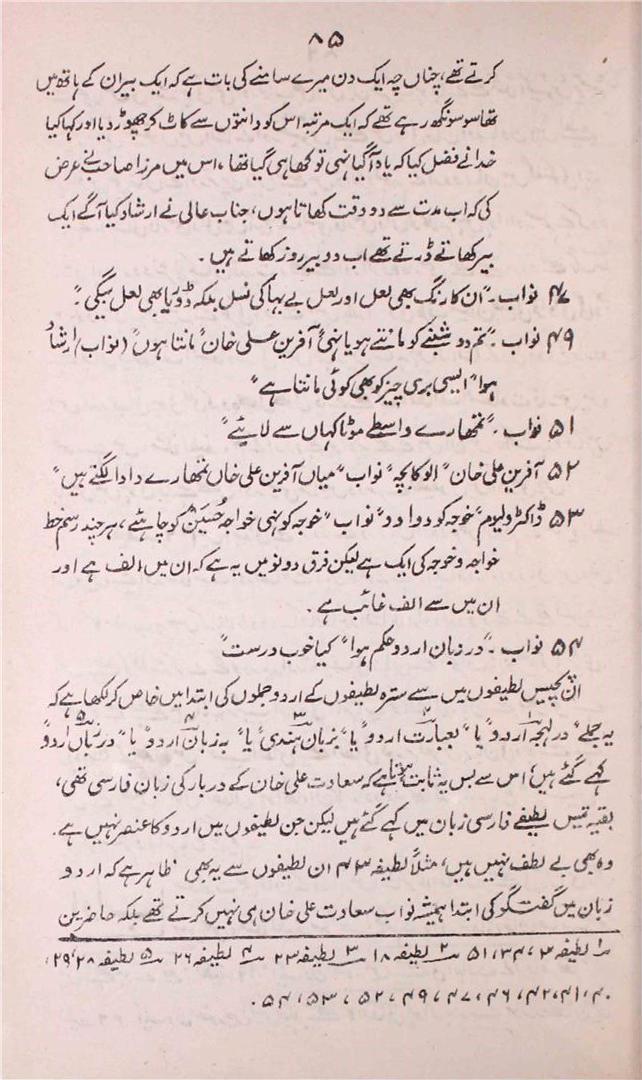 ۸۵
کرتے تھے، چناں چہ ایک دن میرے سامنے کی بات ہے کہ ایک بیران کے ہاتھ میں
تھا سو سونگھ رہے تھے کہ ایک مرتبہ اس کو دانتوں سے کاٹ کر چھوڑ دیا اور کہا کیا
خدا نے فضل کیا کہ یاد آگیا نہی تو کھا ہی گیا تھا، اس میں مرزا صاحب نے عرض
کی کہ اب مدت سے دو وقت کھاتا ہوں، جناب عالی نے ارشاد کیا آگے ایک
بیر کھاتے ڈرتے تھے اب دو بیر روز کھاتے ہیں۔
۴۷ نواب۔ "ان کا رنگ بھی لعل اور لعل بے بہا کی نسل بلکہ ڈوریا بھی لعل بیگی"۔
۴۹ نواب۔ "تم دو شبنے کو مانتے ہو یا نہیٔ" آفرین علی خان "مانتا ہوں" (نواب) ارشاد
ہوا "ایسی بری چیز کو بھی کوئی مانتا ہے"
۵۱ نواب۔ "تمھارے واسطے موٹا کہاں سے لائیے"
۵۲ آفرین علی خان "الو کا بچہ" نواب "میاں آفرین علی خاں تمھارے دادا لگتے ہیں"
۵۳ ڈاکٹر ولیوم "خوجہ کو دوا دو" نواب "خوجہ کو نہی خواجہ حُسَین کو چاہئے، ہر چند رسم خط
خواجہ و خوجہ کی ایک ہے لیکن فرق دونو میں یہ ہے کہ ان میں الف ہے اور
ان میں سے الف غائب ہے۔
۵۴ نواب۔ "در زبان اردو حکم ہوا" کیا خوب درست"
ان پچیس لطیفوں میں سے سترہ لطیفوں کے اردو جملوں کی ابتدا میں خاص کر لکھا ہے کہ
یہ جملے "در لہجہ اردو"۱ یا "بعبارت اردو"۲ یا "بزبان ہندی"۳ یا "بہ زبان اردو"۴ یا "در زبان اردو"۵
کہے گئے ہیں؛ اس سے بس یہ ثابت ہوتا ہے کہ سعادت علی خان کے دربار کی زبان فارسی تھی،
بقیہ تیس لطیفے فارسی زبان میں کہے گئے ہیں لیکن جن لطیفوں میں اردو کا عنصر نہیں ہے۔
وہ بھی بے لطف نہیں ہیں، مثلاً لطیفہ ۴۳ ان لطیفوں سے یہ بھی ظاہر ہے کہ اردو
زبان میں گفتگو کی ابتدا ہمیشہ نواب سعادت علی خان ہی نہیں کرتے تھے بلکہ حاضرین
۱ لطیفہ ۳، ۳۴، ۵۱ ۲ لطیفہ ۱۸ ۳ لطیفہ ۲۳ ۴ لطیفہ ۲۶ ۵ لطیفہ ۲۸، ۲۹،
۴۰، ۴۱، ۴۲، ۴۶، ۴۷، ۴۹، ۵۲، ۵۳، ۵۴۔